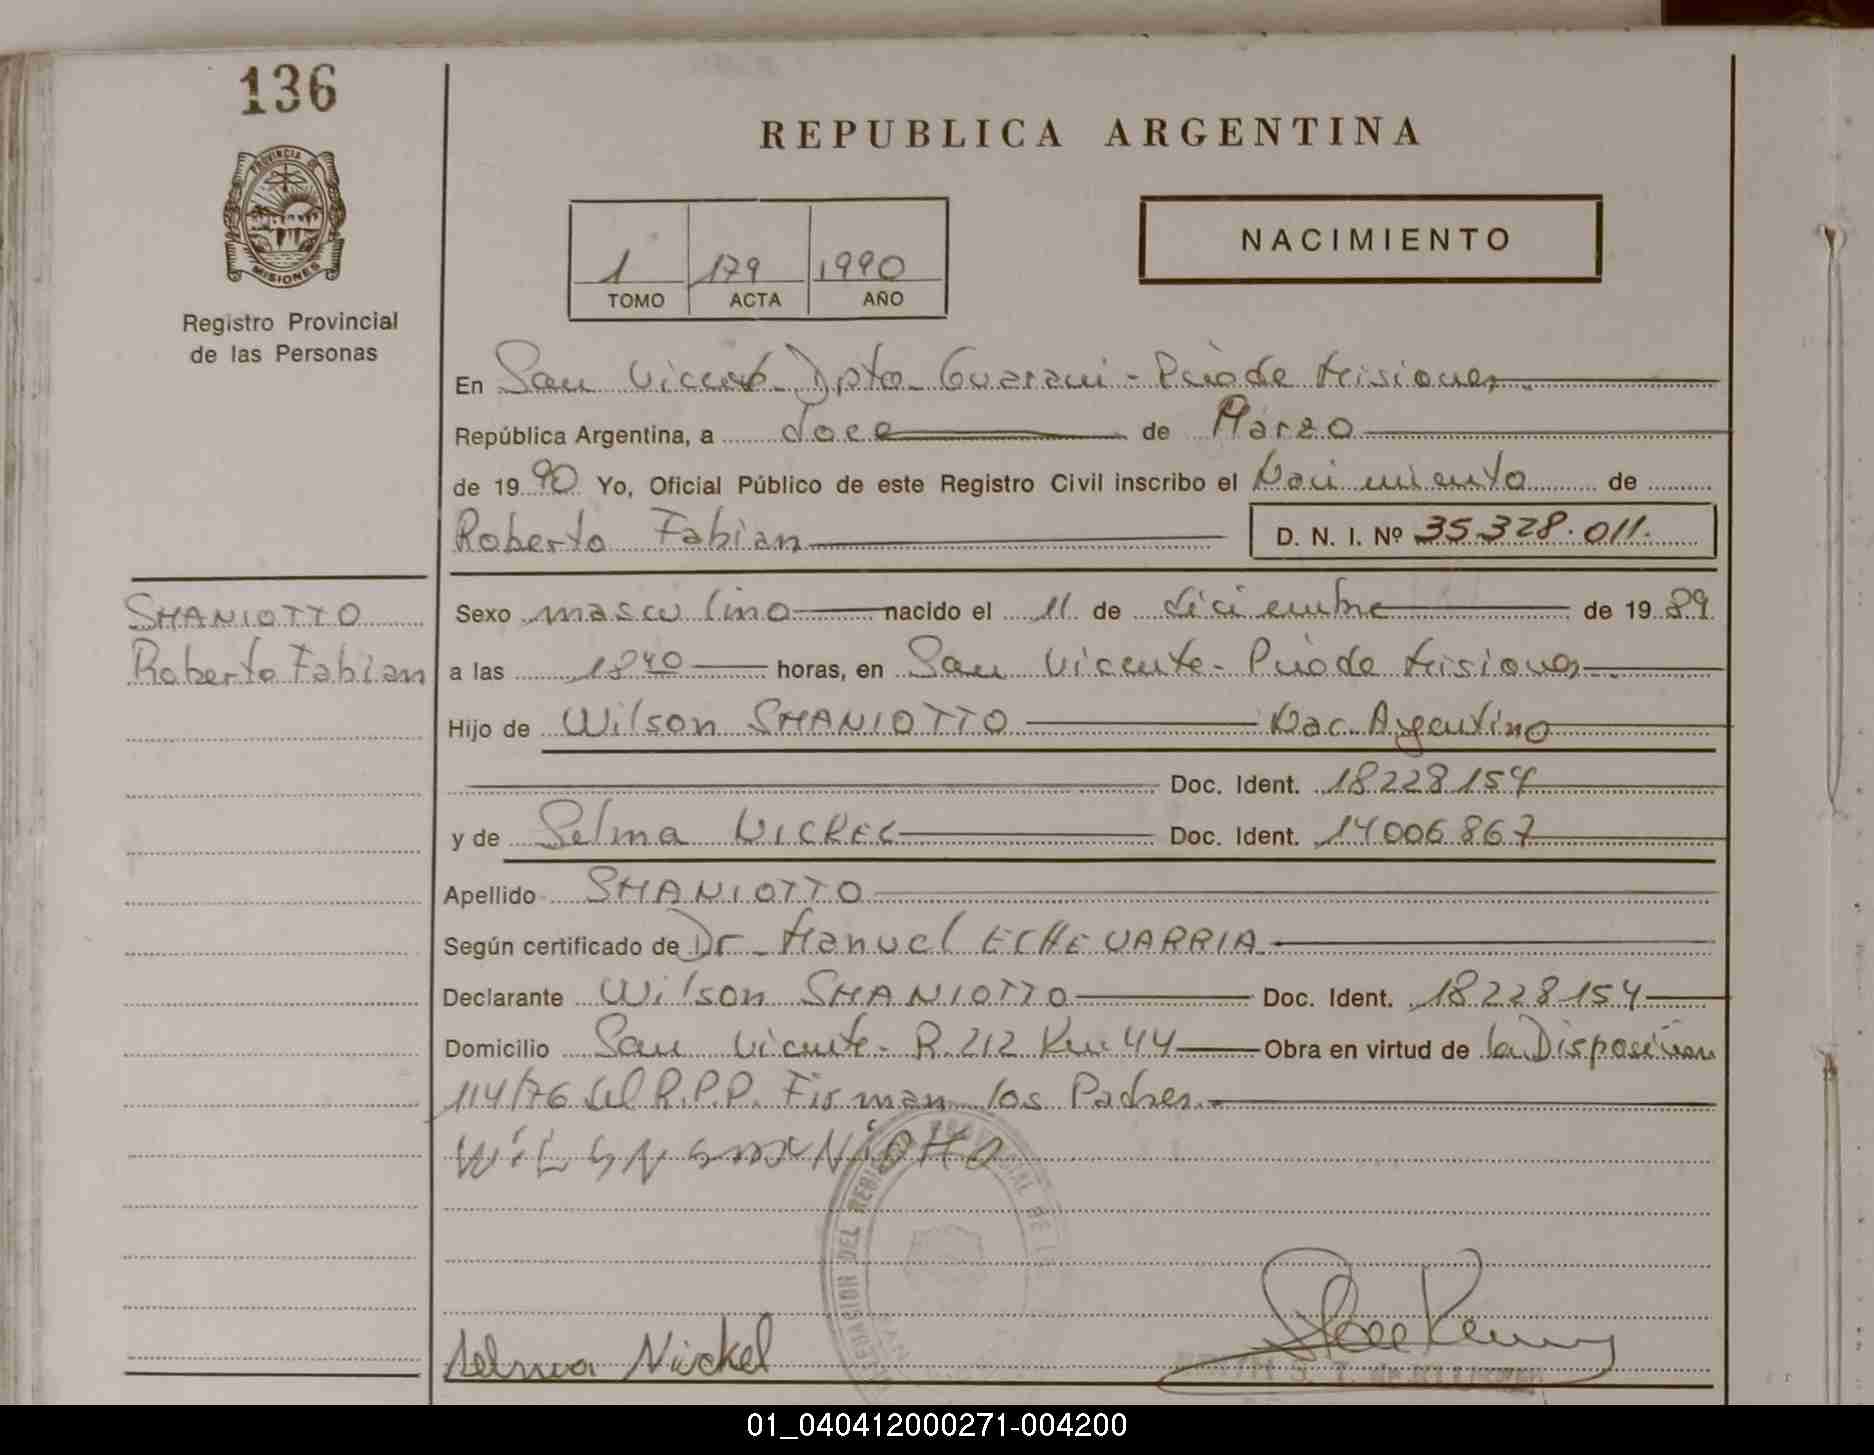 136
REPUBLICA ARGENTINA
PROVINCIA DE
MISIONES
Registro Provincial
de las Personas
1 179 1990
TOMO ACTA AÑO
NACIMIENTO
En San Vicente Dpto Guarani - Pcia de Misiones
República Argentina, a doce de Marzo
de 1990 Yo, Oficial Público de este Registro Civil inscribo el Nacimiento de
Roberto Fabian D. N. I. Nº 35.328.011.
SMANIOTTO
Roberto Fabian
Sexo masculino nacido el 11 de diciembre de 1989
a las 18 40 horas, en San Vicente - Pcia de Misiones
Hijo de Wilson SMANIOTTO Nac. Argentino
Doc. Ident. 18228154
y de Selma NICKEL Doc. Ident. 14006867
Apellido SMANIOTTO
Según certificado de Dr. Manuel ECHEVARRIA
Declarante Wilson SMANIOTTO Doc. Ident. 18228154
Domicilio San Vicente - R. 212 Km 44 Obra en virtud de la Disposición
114/76 del R.P.P. Firman los Padres.
Selma Nickel
01_040412000271-004200